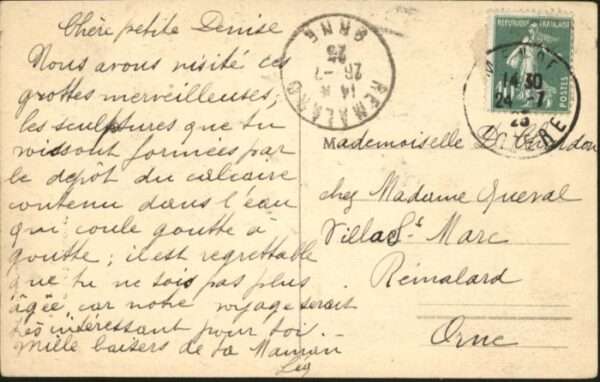 Chère petite Denise
Nous avons visité ces
grottes merveilleuses;
les sculptures que tu
vois sont formées par
le depot du calcaire
contenu dans l'eau
qui coule goutte à
goutte; il est regrettable
que tu ne sois pas plus
âgée car notre voyage serait
très intéressant pour toi.
Mille baisers de ta Maman
REMALARD
ORNE
14
26-7
25
REPUBLIQUE FRANÇAISE
POSTES
14 30
24 7
25
Mademoiselle D.
chez Madame Queval
Villa St Marc
Rémalard
Orne